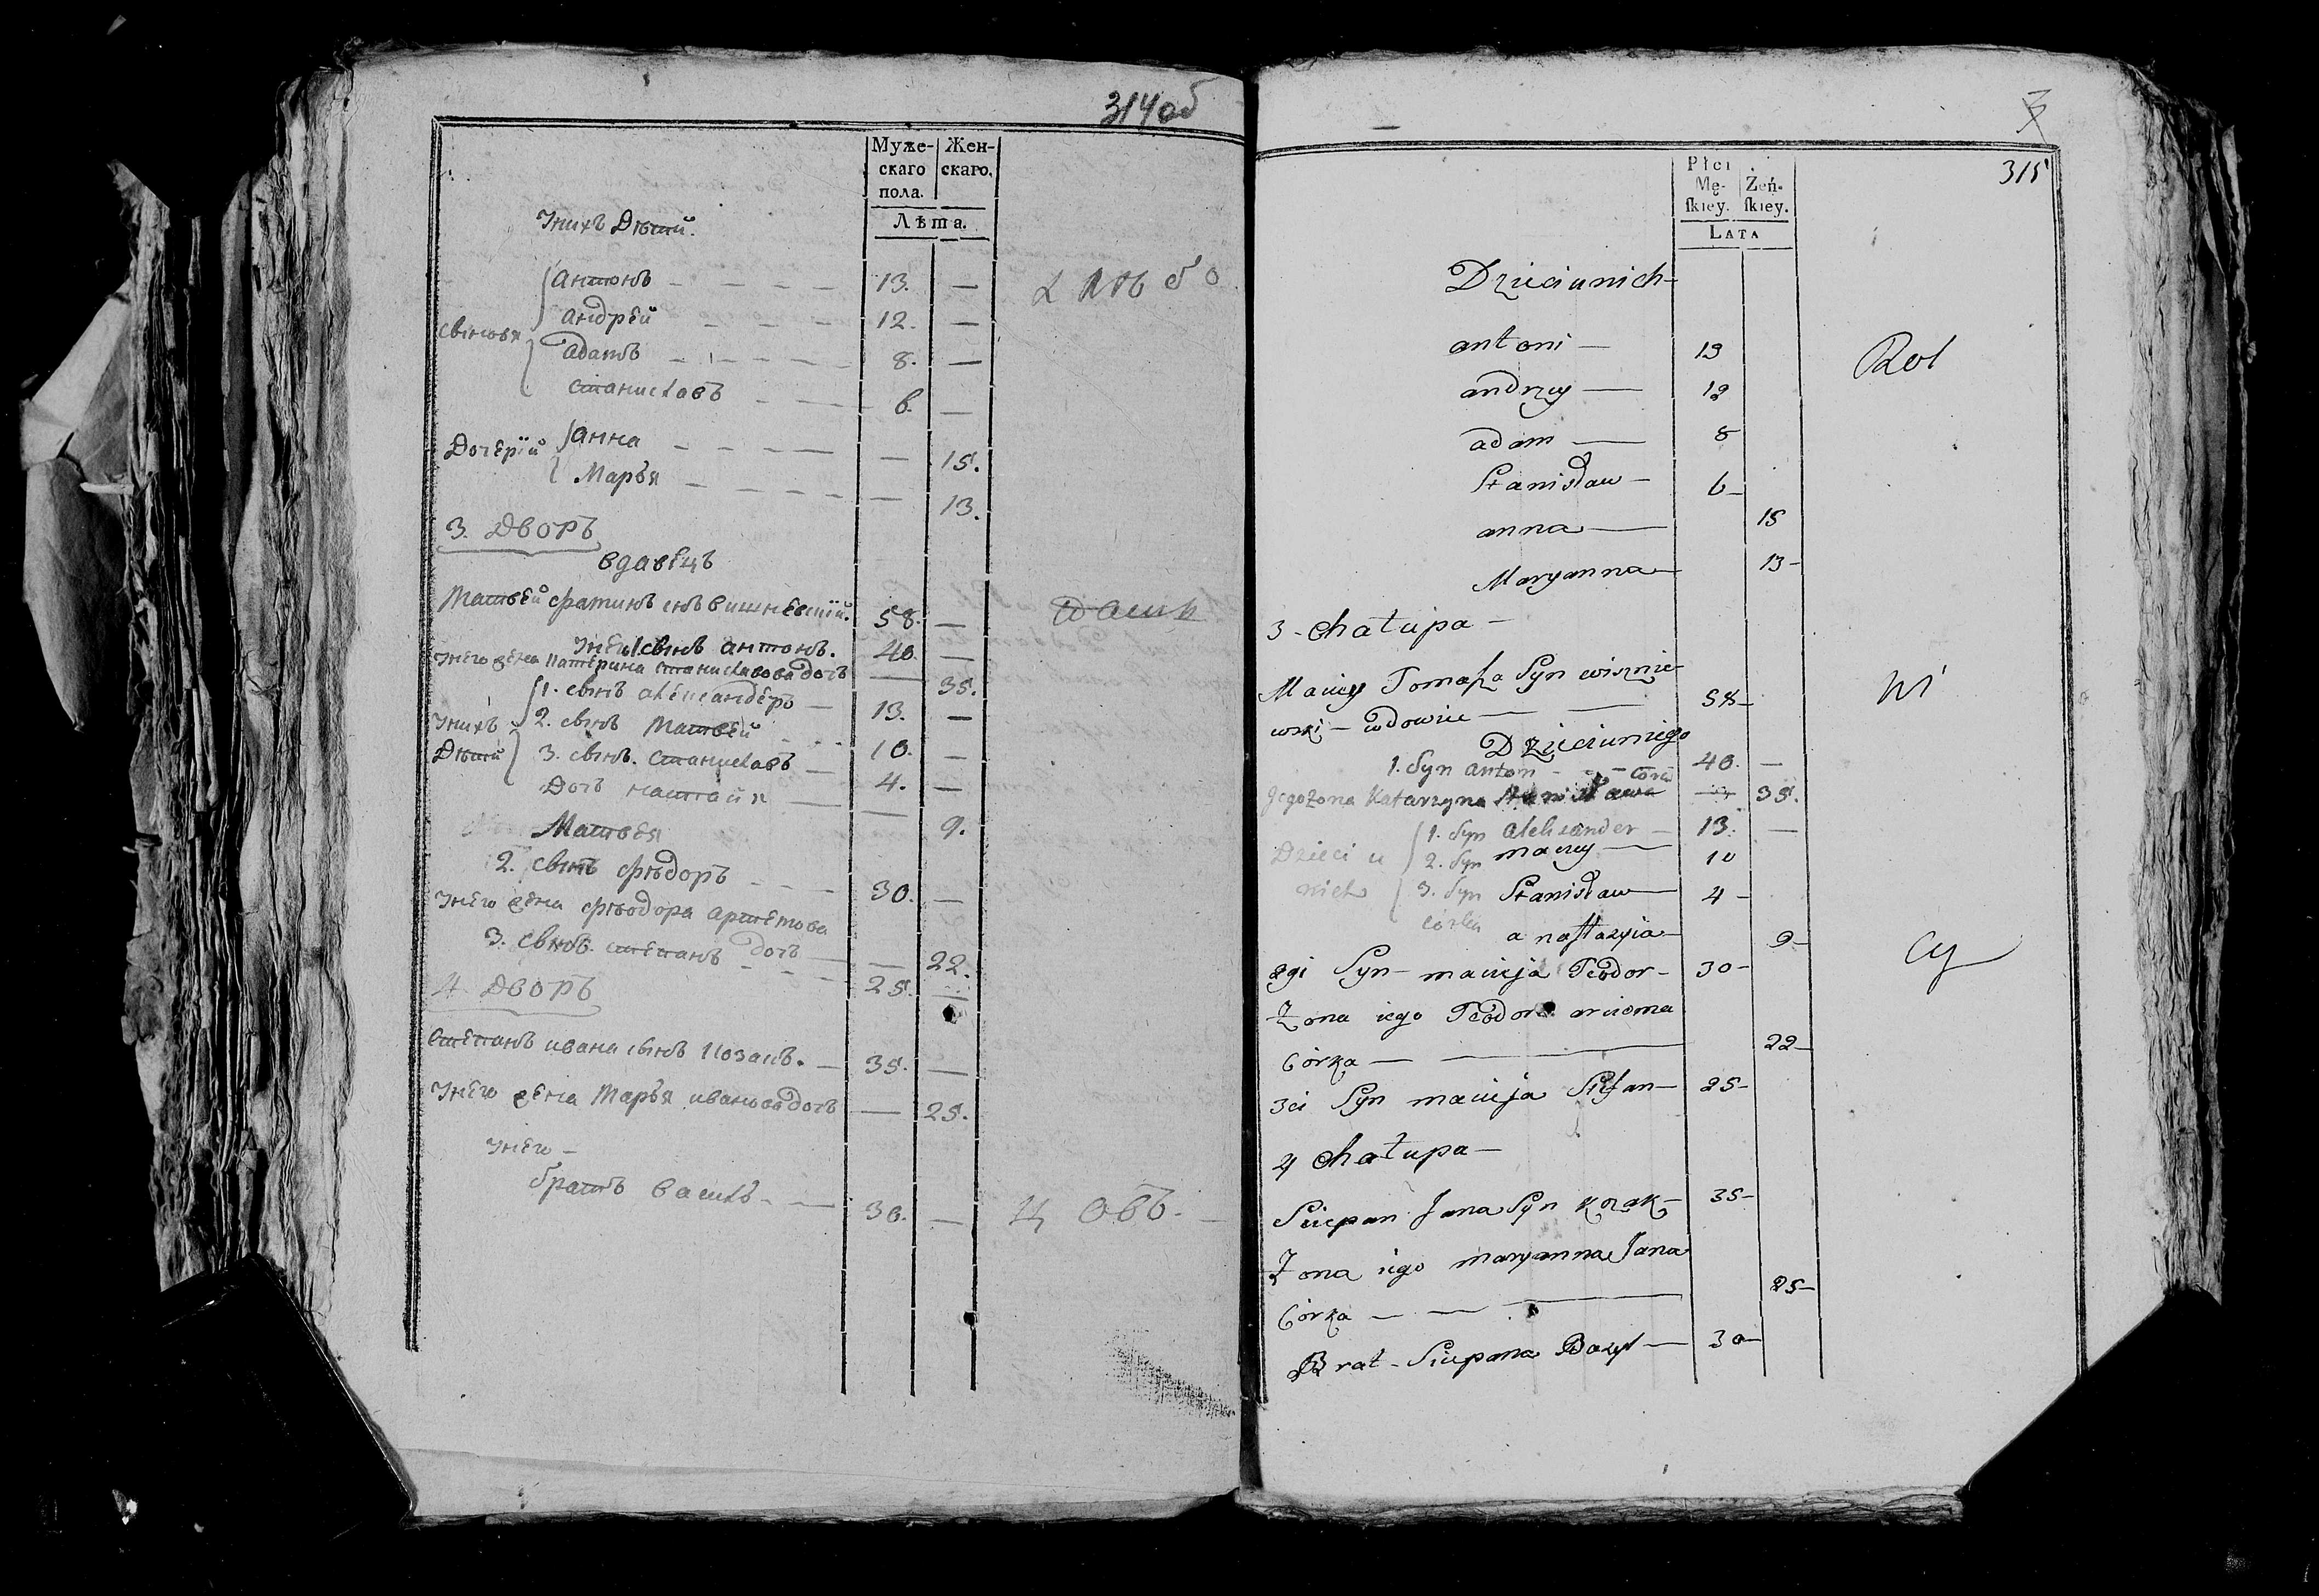 314 об
Муже-
скаго
пола.
Жен-
скаго.
Лѣта.
У нихъ дѣтй.
антонъ 13. —
андрей 12. —
свіновя
адамъ 8. —
станиславъ 6. —
дочерїй
анна — 15.
Марья — 13.
3. дворъ
вдавецъ
Матвей фаминъ снъ вишневскій. 58. —
у него свінъ антонъ. 40. —
у него жена катерина станиславова дочъ — 35.
1. свінъ александеръ — 13. —
у нихъ
2. свінъ матвей 10. —
дѣтй
3. свінъ. станиславъ — 4. —
дочъ настася — 9.
Матвея
2. свінъ фѣдоръ 30. —
у него жена фѣодора артемова
дочъ — 22.
3. свінъ. степанъ 25. —
4 дворъ
степанъ ивана свінъ козакъ. — 35. —
у него жена Марья иванова дочъ — 25.
у него —
братъ васил. — 30. —
ц овъ.
7
315
Płci
Mę-
skiey.
Żeń-
skiey.
LATA
Dzieci u nich
antoni — 13
Rol
andrzey — 12
adam — 8
Stanisław — 6 —
anna — 15
Maryanna — 13 —
3 - chałupa —
Maciey Tomasza Syn wisznie-
wski — wdowiec — 58 —
ni
Dzieci u niego
1. Syn anton - - 40. —
córa
Jego żona Katarzyna Stanisława — 35.
1. Syn alexander — 13. —
Dzieci u
2. Syn maciey — 10
nich
3. Syn Stanisław — 4 —
córka
anastazyia — 9 —
cy
2gi Syn — macieja Teodor — 30 —
Żona iego Teodora arcioma
Córka — 22 —
3ci Syn macieja Stefan — 25 —
4 chałupa —
Sciepan Jana Syn kozak — 35 —
Żona iego maryanna Jana
Córka — 25 —
Brat — Sciepana Bazyl — 30 —